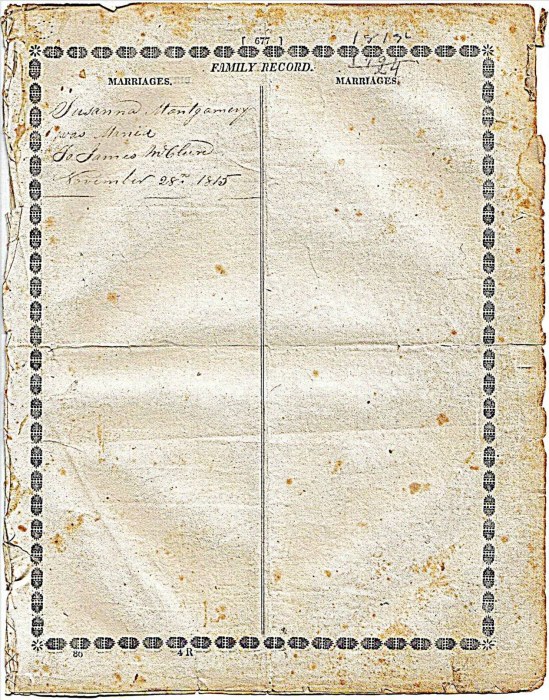 [ 677 ]
FAMILY RECORD.
MARRIAGES.
MARRIAGES.
Susanna Montgomery
was
To James McClure
November 28th 1815
86
4 R